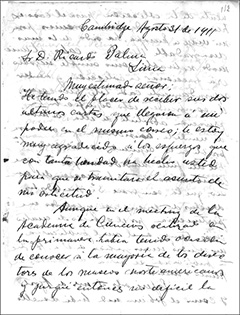 112
Cambridge Agosto 31 de 1911
Sr. D. Ricardo Palma
Lima
Muy estimado señor;
He tenido el placer de recibir sus dos
ultimas cartas, que llegaron a mi
poder en el mismo correo; le estoy
muy agradecido a los esfuerzos que
con tanta bondad ha hecho usted
para que se tramitara el asunto de
mi solicitud
Aunque en el meeting de la
Academia de Ciencias celebrado en
la primavera habia tenido ocasión
de conocer a la mayoría de los direc
tores de los museos norte americanos
y aunque entonces no dificil la